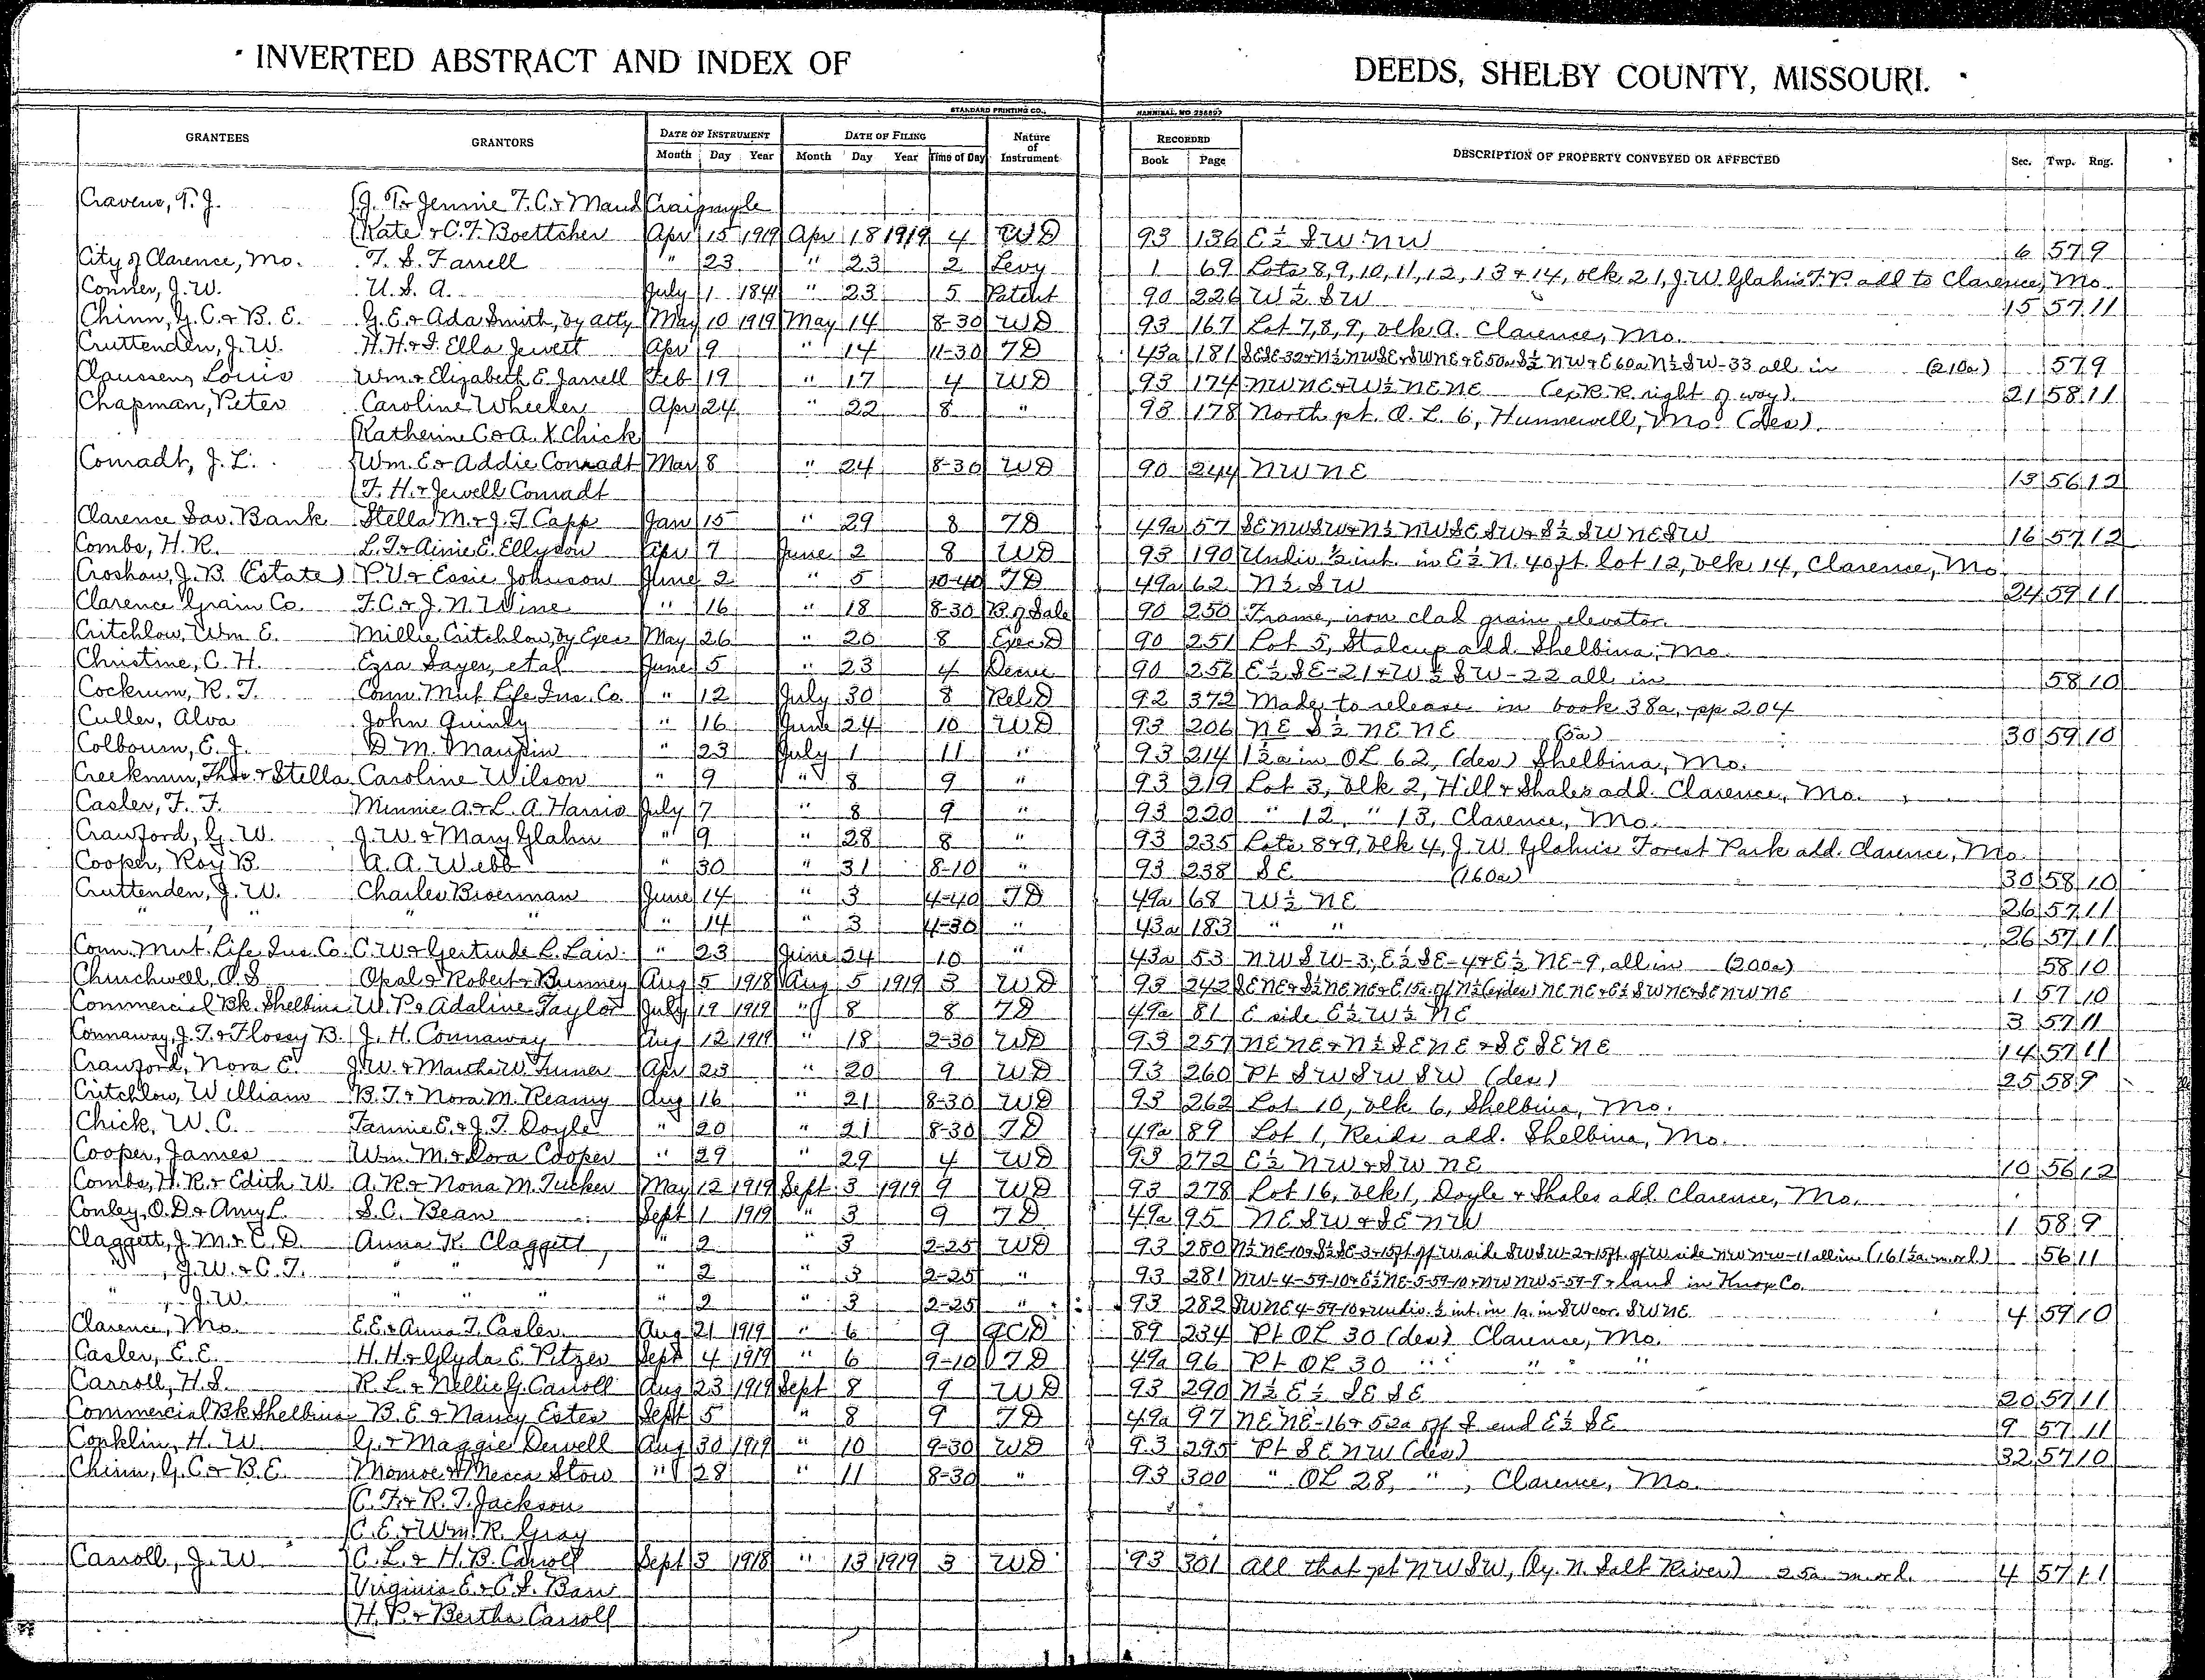 INVERTED ABSTRACT AND INDEX OF DEEDS, SHELBY COUNTY, MISSOURI.
STANDARD PRINTING CO., HANNIBAL, MO
GRANTEES GRANTORS DATE OF INSTRUMENT DATE OF FILING Nature of Instrument RECORDED DESCRIPTION OF PROPERTY CONVEYED OR AFFECTED Sec. Twp. Rng.
Month Day Year Month Day Year Time of Day Book Page
Cravens, T. J. J. T. & Jennie F. C. & Maud Craigmyle
Kate & C. F. Boettcher Apr 15 1919 Apr 18 1919 4 WD 93 136 E½ SW NW 6 57 9
City of Clarence, Mo. T. S. Farrell " 23 " 23 2 Levy 1 69 Lots 8, 9, 10, 11, 12, 13 & 14, blk 21, J. W. Glahn's F. P. add to Clarence, Mo.
Conner, J. W. U. S. A. July 1 1841 " 23 5 Patent 90 226 W½ SW 15 57 11
Chinn, G. C. & B. E. G. E. & Ada Smith, by atty May 10 1919 May 14 8-30 WD 93 167 Lot 7, 8, 9, blk A. Clarence, Mo.
Cruttenden, J. W. H. H. & I. Ella Jewett Apr 9 " 14 11-30 TD 43a 181 SESE-32 & N½ NWSE & SWNE & E50a S½ NW & E 60a N½ SW-33 all in (210a) 57 9
Claussen, Louis Wm & Elizabeth E. Jarrell Feb 19 " 17 4 WD 93 174 NWNE & W½ NENE (ex R. R. right of way). 21 58 11
Chapman, Peter Caroline Wheeler Apr 24 " 22 8 " 93 178 North pt. O. L. 6, Hunnewell, Mo. (des).
Katherine C. & A. X. Chick
Conradt, J. L. Wm. E. & Addie Conradt Mar 8 " 24 8-30 WD 90 244 NWNE 13 56 12
F. H. & Jewell Conradt
Clarence Sav. Bank Stella M. & J. T. Capp Jan 15 " 29 8 TD 49a 57 SENWSW & N½ NWSESW & S½ SWNESW 16 57 12
Combs, H. R. L. T. & Ainie E. Ellyson Apr 7 June 2 8 WD 93 190 Undiv ½ int. in E½ N. 40 ft. lot 12, blk 14, Clarence, Mo.
Croshaw, J. B. (Estate) P. V. & Essie Johnson June 2 " 5 10-40 TD 49a 62 N½ SW 24 59 11
Clarence Grain Co. F. C. & J. N. Wine " 16 " 18 8-30 B. of Sale 90 250 Frame, iron clad grain elevator.
Critchlow, Wm E. Millie Critchlow, by Exec May 26 " 20 8 Exec D 90 251 Lot 5, Stalcup add. Shelbina, Mo.
Christine, C. H. Ezra Sayer, et al June 5 " 23 4 Decree 90 256 E½ SE-21 & W½ SW-22 all in 58 10
Cockrum, R. T. Conn. Mut Life Ins. Co. " 12 July 30 8 Rel D 92 372 Made to release in book 38a, pp 204
Culler, Alva John Quinly " 16 June 24 10 WD 93 206 NE S½ NENE (5a) 30 59 10
Colbourn, E. J. D. M. Maupin " 23 July 1 11 " 93 214 1½a in OL 62, (des) Shelbina, Mo.
Creekmun, Theo. & Stella Caroline Wilson " 9 " 8 9 " 93 219 Lot 3, blk 2, Hill & Shales add. Clarence, Mo.
Casler, F. F. Minnie A. & L. A. Harris July 7 " 8 9 " 93 220 " 12, " 13, Clarence, Mo.
Crawford, G. W. J. W. & Mary Glahn " 9 " 28 8 " 93 235 Lots 8 & 9, blk 4, J. W. Glahn's Forest Park add. Clarence, Mo.
Cooper, Roy B. A. A. Webb " 30 " 31 8-10 " 93 238 SE (160a) 30 58 10
Cruttenden, J. W. Charles Bioerman June 14 " 3 4-40 TD 49a 68 W½ NE 26 57 11
" " " " " 14 " 3 4-30 " 43a 183 " " 26 57 11
Conn. Mut. Life Ins. Co. C. W. & Gertrude L. Lair " 23 June 24 10 " 43a 53 NWSW-3, E½ SE-4 & E½ NE-9, all in (200a) 58 10
Churchwell, O. S. Opal & Robert Bunney Aug 5 1918 Aug 5 1919 3 WD 93 242 SENE & S½ NENE & E 15a of N½ (exdes) NENE & E½ SWNE & SENWNE 1 57 10
Commercial Bk. Shelbina W. P. & Adaline Taylor July 19 1919 " 8 8 TD 49a 81 E side E½ W½ NE 3 57 11
Connaway, J. T. & Flossy B. J. H. Connaway Aug 12 1919 " 18 2-30 WD 93 257 NENE & N½ SENE & SESENE 14 57 11
Crawford, Nora E. J. W. & Martha W. Turner Apr 23 " 20 9 WD 93 260 Pt SWSWSW (des) 25 58 9
Critchlow, William B. T. & Nora M. Reamy Aug 16 " 21 8-30 WD 93 262 Lot 10, blk 6, Shelbina, Mo.
Chick, W. C. Fannie E. & J. T. Doyle " 20 " 21 8-30 TD 49a 89 Lot 1, Reids add. Shelbina, Mo.
Cooper, James Wm. M. & Dora Cooper " 29 " 29 4 WD 93 272 E½ NW & SWNE 10 56 12
Combs, H. R. & Edith W. A. R. & Nona M. Tucker May 12 1919 Sept 3 1919 9 WD 93 278 Lot 16, blk 1, Doyle & Shales add. Clarence, Mo.
Conley, O. D. & Amy L. S. C. Bean Sept 1 1919 " 3 9 TD 49a 95 NESW & SENW 1 58 9
Claggett, J. M. & C. D. Anna K. Claggett " 2 " 3 2-25 WD 93 280 N½ NE-10 & S½ SE-3 & 15ft of W side SWSW-2 & 15ft. of W side NWNW-11 all in (161½a. m. or l.) 56 11
" , J. W. & C. T. " " " " 2 " 3 2-25 " 93 281 NW-4-59-10 & E½ NE-5-59-10 & NWNW 5-59-9 & land in Knox Co.
" , J. W. " " " " 2 " 3 2-25 " 93 282 SWNE 4-59-10 & undiv. ½ int. in 1a. in SW cor. SWNE 4 59 10
Clarence, Mo. E. E. & Anna T. Casler Aug 21 1919 " 6 9 QCD 89 234 Pt OL 30 (des) Clarence, Mo.
Casler, E. E. H. H. & Glyda E. Pitzer Sept 4 1919 " 6 9-10 TD 49a 96 Pt OL 30 " " " "
Carroll, H. S. R. L. & Nellie G. Carroll Aug 23 1919 Sept 8 9 WD 93 290 N½ E½ SESE 20 57 11
Commercial Bk Shelbina B. E. & Nancy Estes Sept 5 " 8 9 TD 49a 97 NENE-16 & 52a off S end E½ SE 9 57 11
Conklin, H. W. G. & Maggie Dewell Aug 30 1919 " 10 9-30 WD 93 295 Pt SENW (des) 32 57 10
Chinn, G. C. & B. E. Monroe & Mecca Stow " 28 " 11 8-30 " 93 300 " OL 28, " , Clarence, Mo.
C. F. & R. T. Jackson
C. E. & Wm. R. Gray
Carroll, J. W. C. L. & H. B. Carroll Sept 3 1918 " 13 1919 3 WD 93 301 All that pt NWSW, (ly. N. Salt River) 25a m. or l. 4 57 11
Virginia E. & C. S. Barr
H. P. & Bertha Carroll